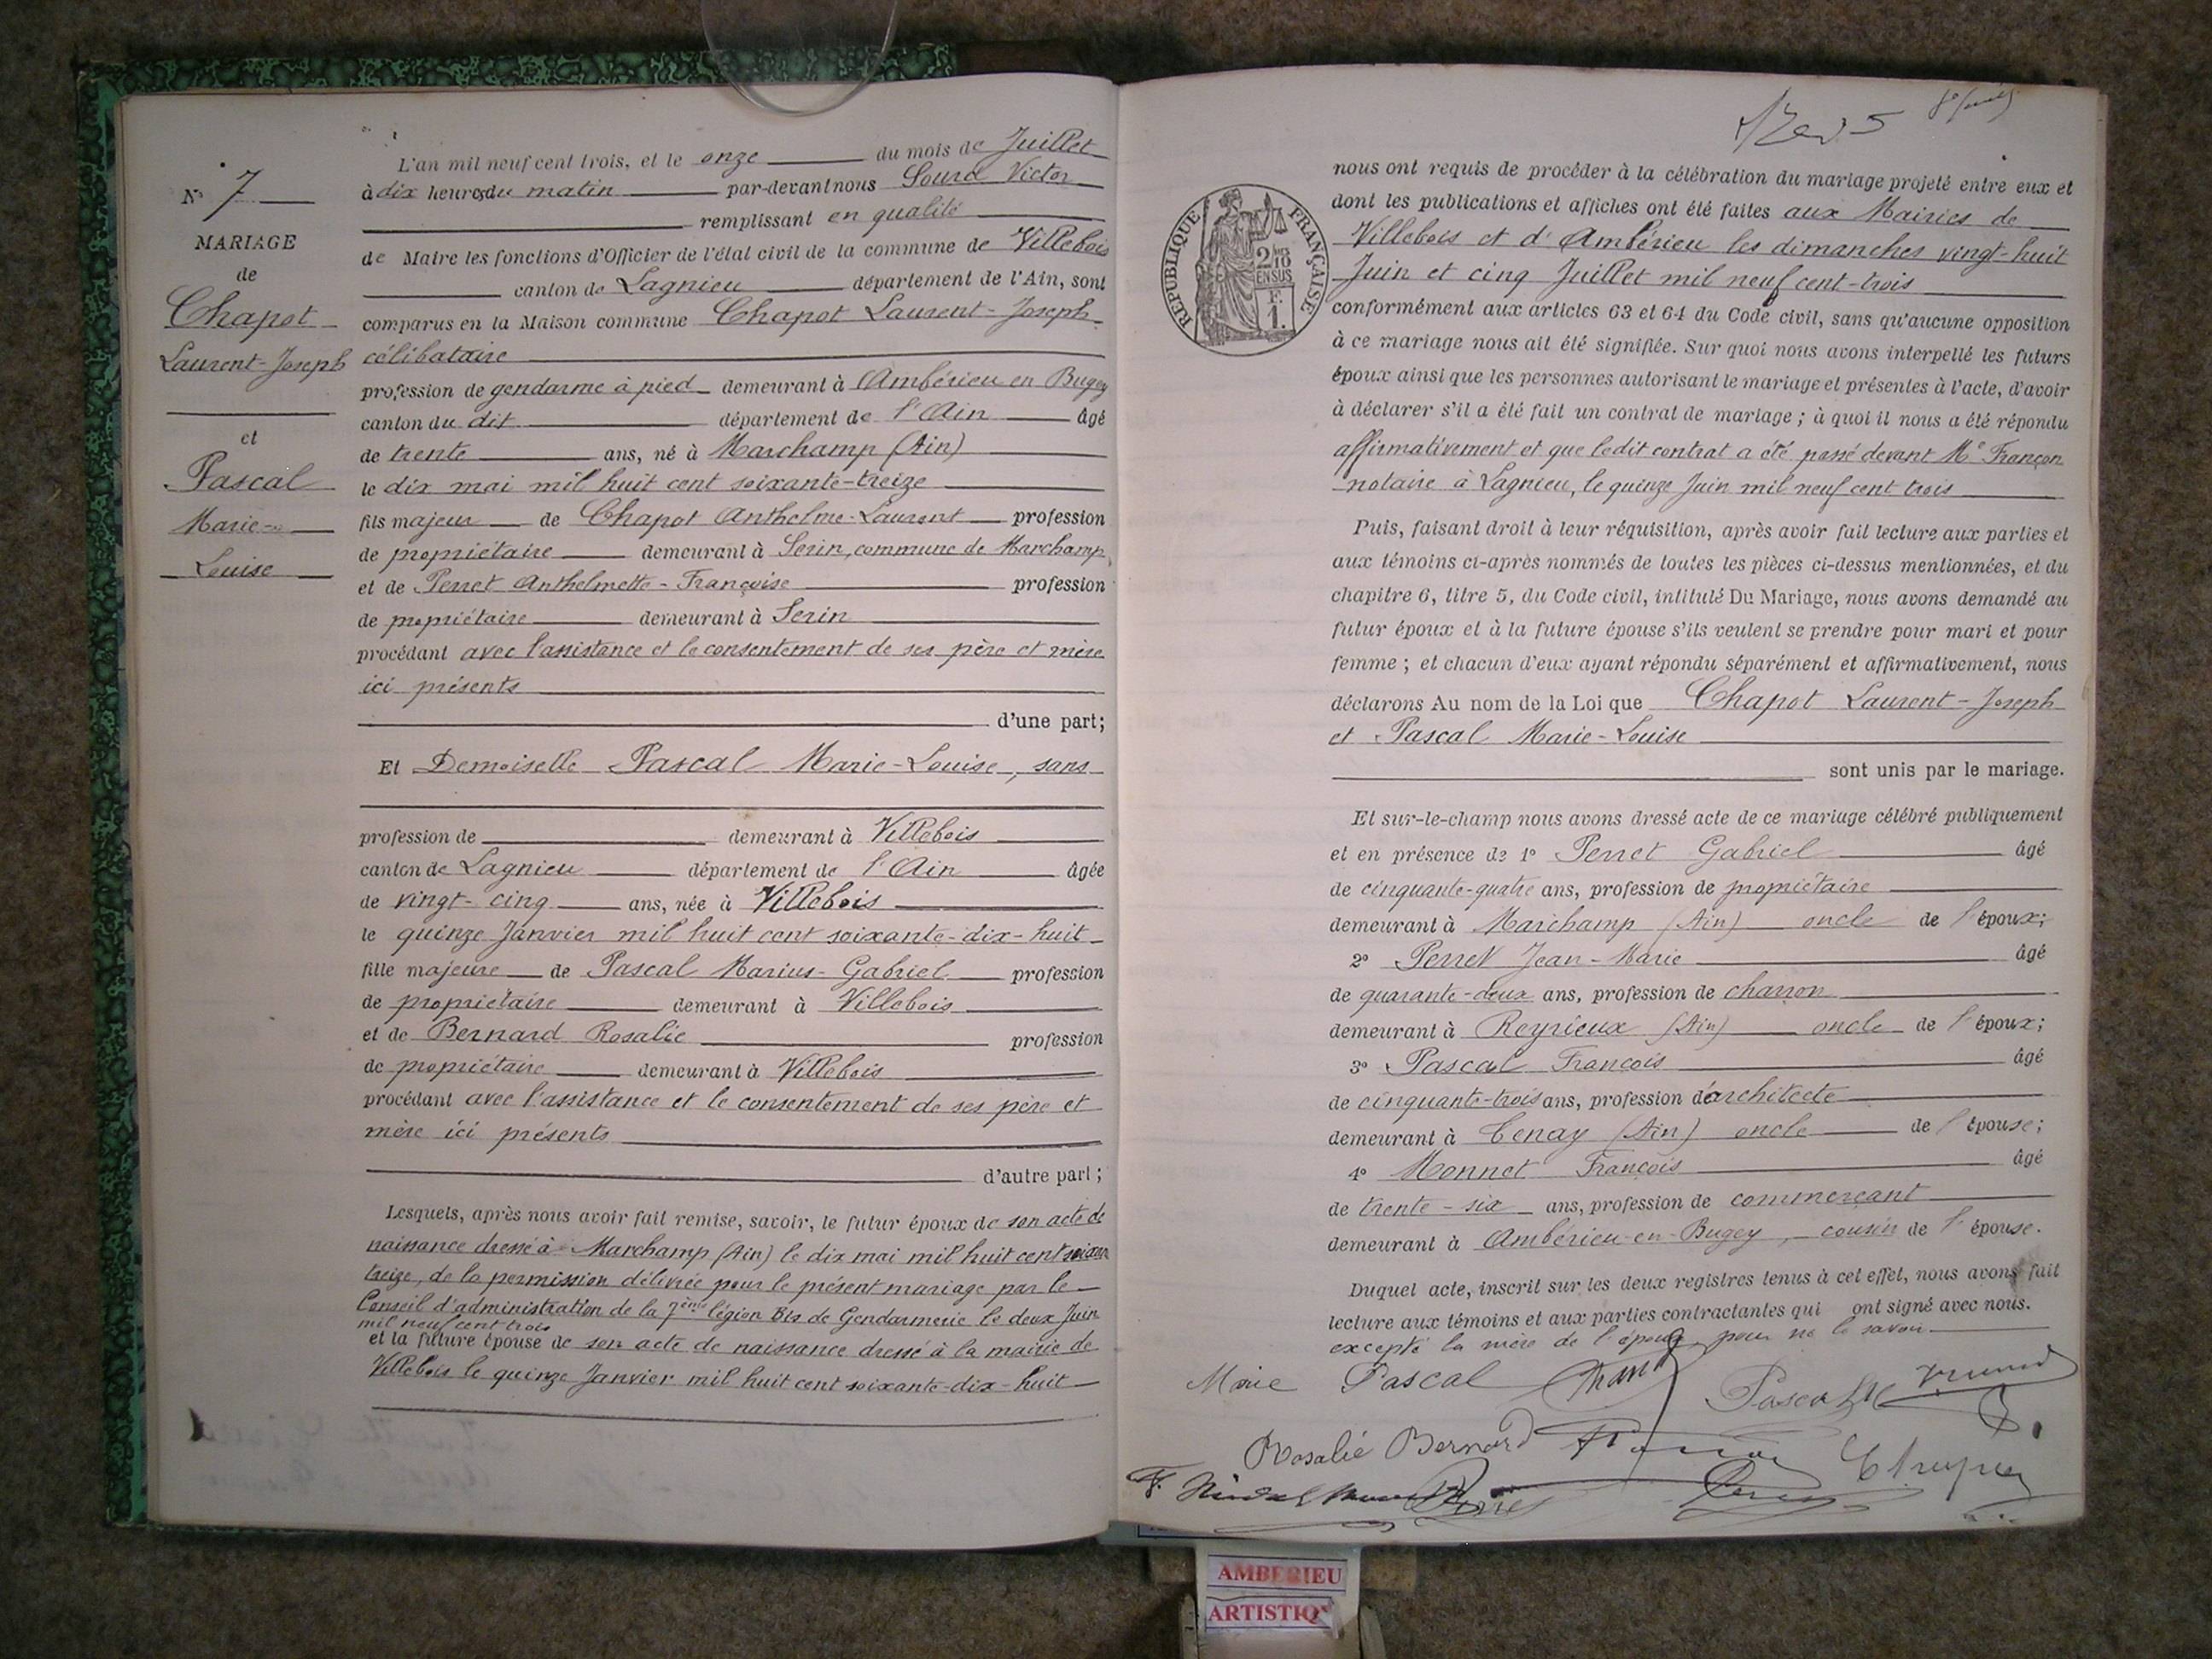 N° 7
MARIAGE
de
Chapot
Laurent-Joseph
et
Pascal
Marie-
Louise
L'an mil neuf cent trois, et le onze du mois de Juillet
à dix heures du matin par-devant nous Sourd Victor
remplissant en qualité
de Maire les fonctions d'Officier de l'état civil de la commune de Villebois
canton de Lagnieu département de l'Ain, sont
comparus en la Maison commune Chapot Laurent-Joseph
célibataire
profession de gendarme à pied demeurant à Ambérieu en Bugey
canton du dit département de l'Ain âgé
de trente ans, né à Marchamp (Ain)
le dix mai mil huit cent soixante-treize
fils majeur de Chapot Anthelme-Laurent profession
de propriétaire demeurant à Serin, commune de Marchamp,
et de Perret Anthelmette-Françoise profession
de propriétaire demeurant à Serin
procédant avec l'assistance et le consentement de ses père et mère
ici présents
d'une part;
Et Demoiselle Pascal Marie-Louise, sans
profession de demeurant à Villebois
canton de Lagnieu département de l'Ain âgée
de vingt-cinq ans, née à Villebois
le quinze Janvier mil huit cent soixante-dix-huit
fille majeure de Pascal Marius-Gabriel profession
de propriétaire demeurant à Villebois
et de Bernard Rosalie profession
de propriétaire demeurant à Villebois
procédant avec l'assistance et le consentement de ses père et
mère ici présents
d'autre part;
Lesquels, après nous avoir fait remise, savoir, le futur époux de son acte de
naissance dressé à Marchamp (Ain) le dix mai mil huit cent soixante
treize, de la permission délivrée pour le présent mariage par le
Conseil d'administration de la 7ème légion Bis de Gendarmerie le deux Juin
mil neuf cent trois
et la future épouse de son acte de naissance dressé à la mairie de
Villebois le quinze Janvier mil huit cent soixante-dix-huit
nous ont requis de procéder à la célébration du mariage projeté entre eux et
dont les publications et affiches ont été faites aux Mairies de
Villebois et d'Ambérieu les dimanches vingt-huit
Juin et cinq Juillet mil neuf cent-trois
RÉPUBLIQUE FRANÇAISE
2/10
EN SUS
F.
1.
conformément aux articles 63 et 64 du Code civil, sans qu'aucune opposition
à ce mariage nous ait été signifiée. Sur quoi nous avons interpellé les futurs
époux ainsi que les personnes autorisant le mariage et présentes à l'acte, d'avoir
à déclarer s'il a été fait un contrat de mariage; à quoi il nous a été répondu
affirmativement et que ledit contrat a été passé devant Me Françon
notaire à Lagnieu, le quinze Juin mil neuf cent trois
Puis, faisant droit à leur réquisition, après avoir fait lecture aux parties et
aux témoins ci-après nommés de toutes les pièces ci-dessus mentionnées, et du
chapitre 6, titre 5, du Code civil, intitulé Du Mariage, nous avons demandé au
futur époux et à la future épouse s'ils veulent se prendre pour mari et pour
femme; et chacun d'eux ayant répondu séparément et affirmativement, nous
déclarons Au nom de la Loi que Chapot Laurent-Joseph
et Pascal Marie-Louise
sont unis par le mariage.
Et sur-le-champ nous avons dressé acte de ce mariage célébré publiquement
et en présence de 1° Perret Gabriel âgé
de cinquante-quatre ans, profession de propriétaire
demeurant à Marchamp (Ain) oncle de l'époux;
2° Perret Jean-Marie âgé
de quarante-deux ans, profession de charron
demeurant à Reyrieux (Ain) oncle de l'époux;
3° Pascal François âgé
de cinquante-trois ans, profession d'architecte
demeurant à Tenay (Ain) oncle de l'épouse;
4° Monnet François âgé
de trente-six ans, profession de commerçant
demeurant à Ambérieu-en-Bugey, cousin de l'épouse.
Duquel acte, inscrit sur les deux registres tenus à cet effet, nous avons fait
lecture aux témoins et aux parties contractantes qui ont signé avec nous.
excepté la mère de l'époux, pour ne le savoir
Marie Pascal
Rosalie Bernard
AMBERIEU
ARTISTIQ